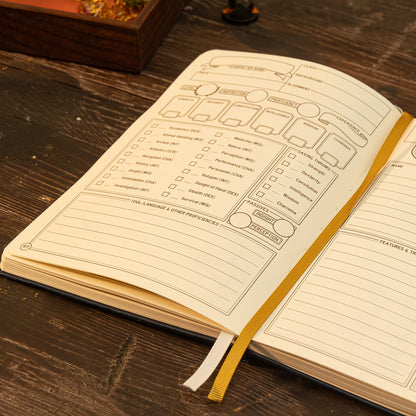 CHARACTER NAME
CLASS
RACE
BACKGROUND
ALIGNMENT
LEVEL
INSPIRATION
PROFICIENCY
EXPERIENCE
STRENGTH
DEXTERITY
CONSTITUTION
INTELLIGENCE
WISDOM
CHARISMA
Acrobatics (DEX)
Animal Handling (WIS)
Arcana (INT)
Athletics (STR)
Deception (CHA)
History (INT)
Insight (WIS)
Intimidation (CHA)
Investigation (INT)
Medicine (WIS)
Nature (INT)
Perception (WIS)
Performance (CHA)
Persuasion (CHA)
Religion (INT)
Sleight of Hand (DEX)
Stealth (DEX)
Survival (WIS)
SAVING THROWS
Strength
Dexterity
Constitution
Intelligence
Wisdom
Charisma
PASSIVES
INSIGHT
PERCEPTION
TOOL/LANGUAGE & OTHER PROFICIENCIES
NAME
FEATURES & TR